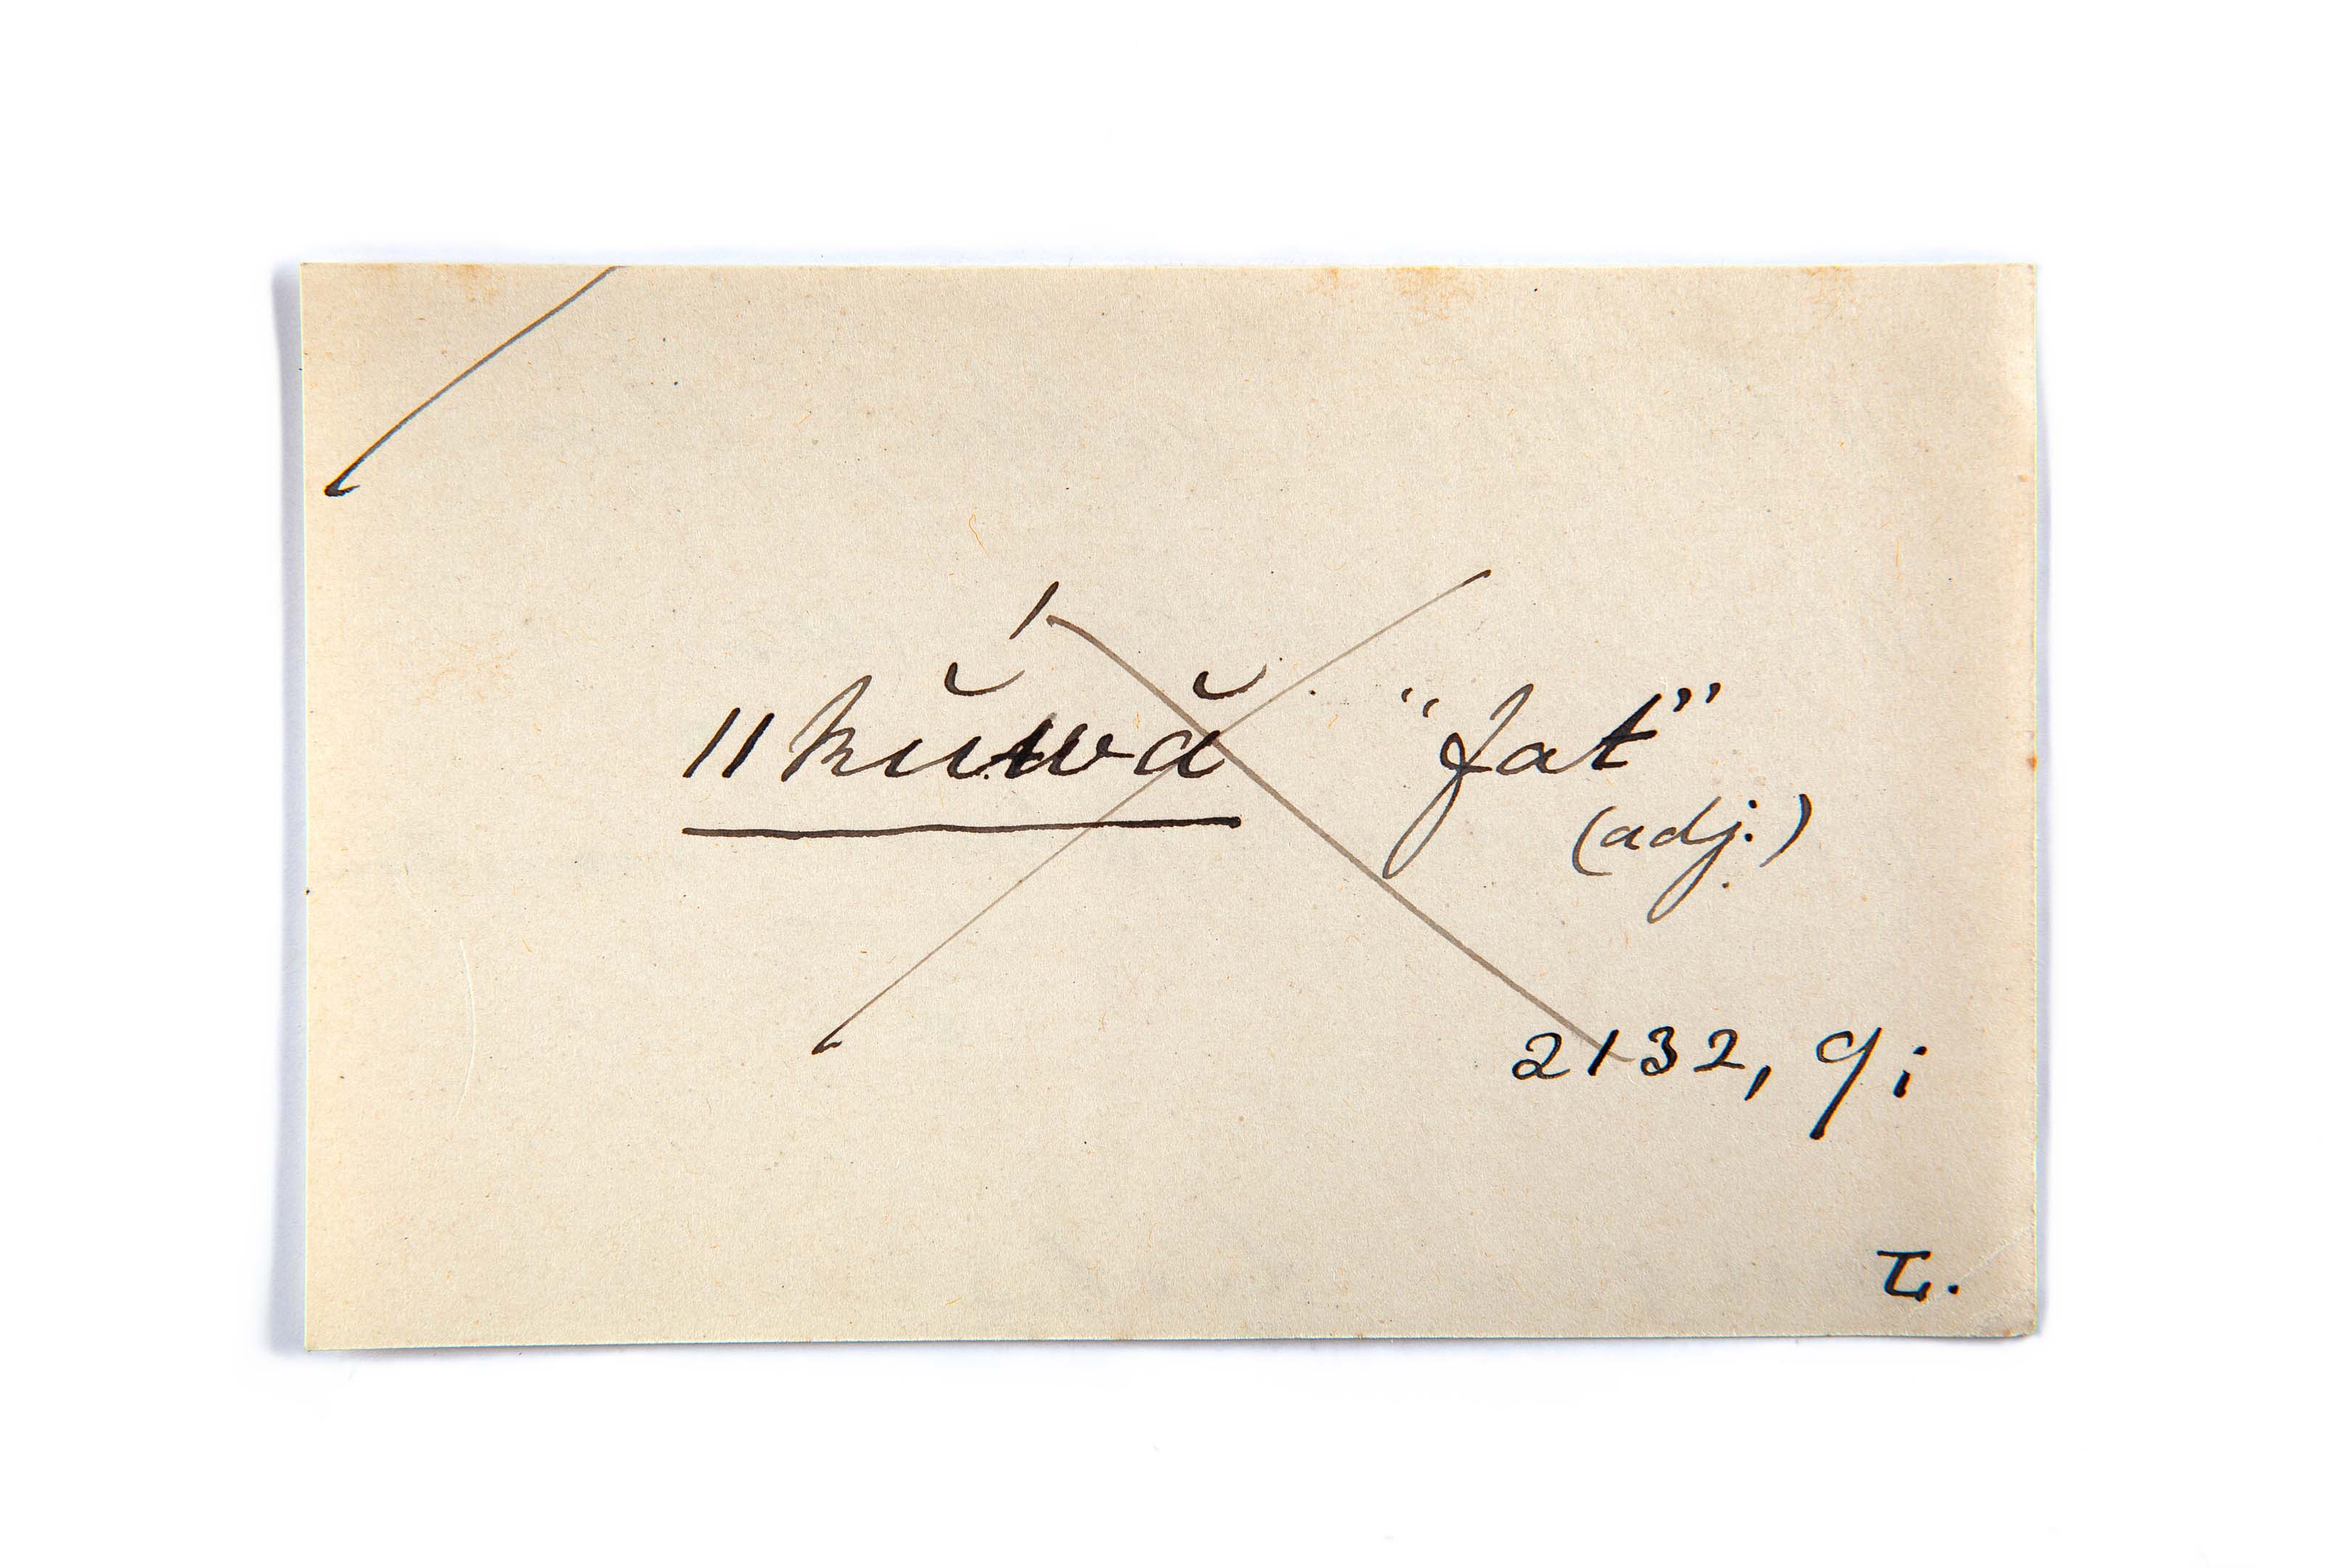 ǁkŭ́wă “fat”
(adj:)
2132, 9;
T.